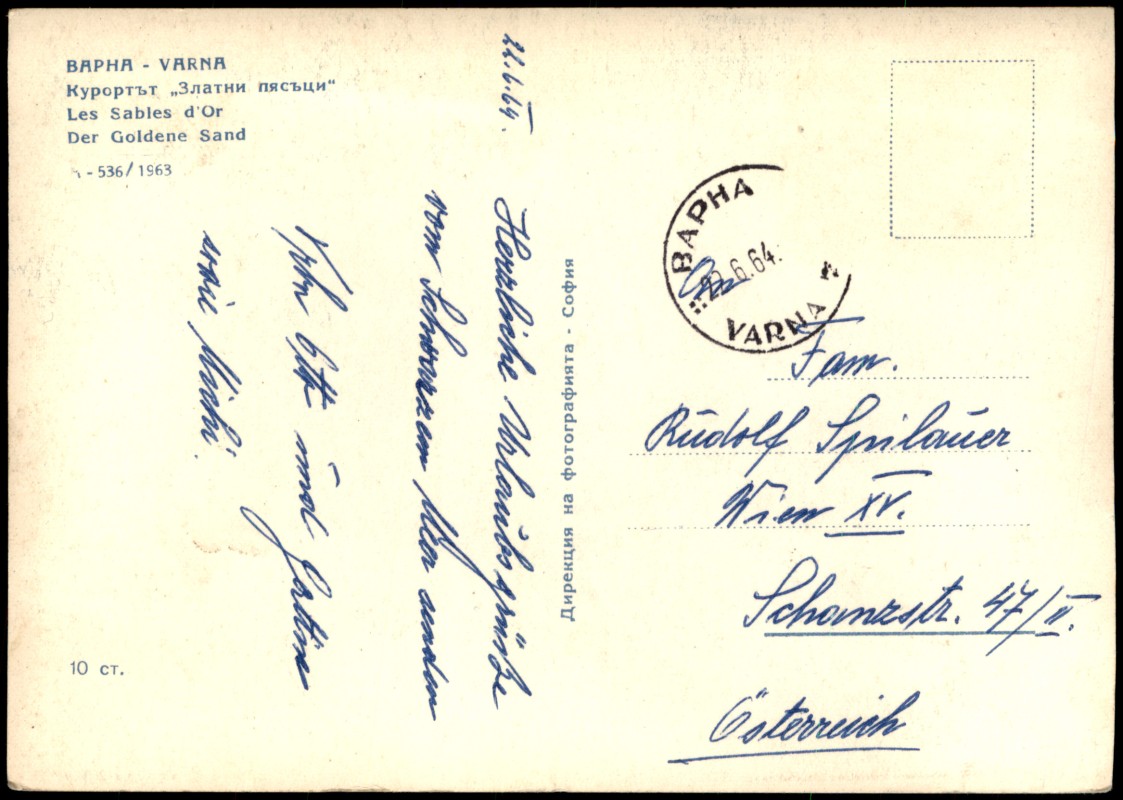 ВАРНА - VARNA
Курортът „Златни пясъци"
Les Sables d'Or
Der Goldene Sand
- 536/1963
22.6.64.
Herzliche Urlaubsgrüße
vom Schwarzen Meer senden
Otti und Gattin
Michi.
10 ст.
Дирекция на фотографията - София
ВАРНА
22.6.64.
VARNA
An
Fam.
Rudolf Spilauer
Wien XV.
Schanzstr. 47/II.
Österreich